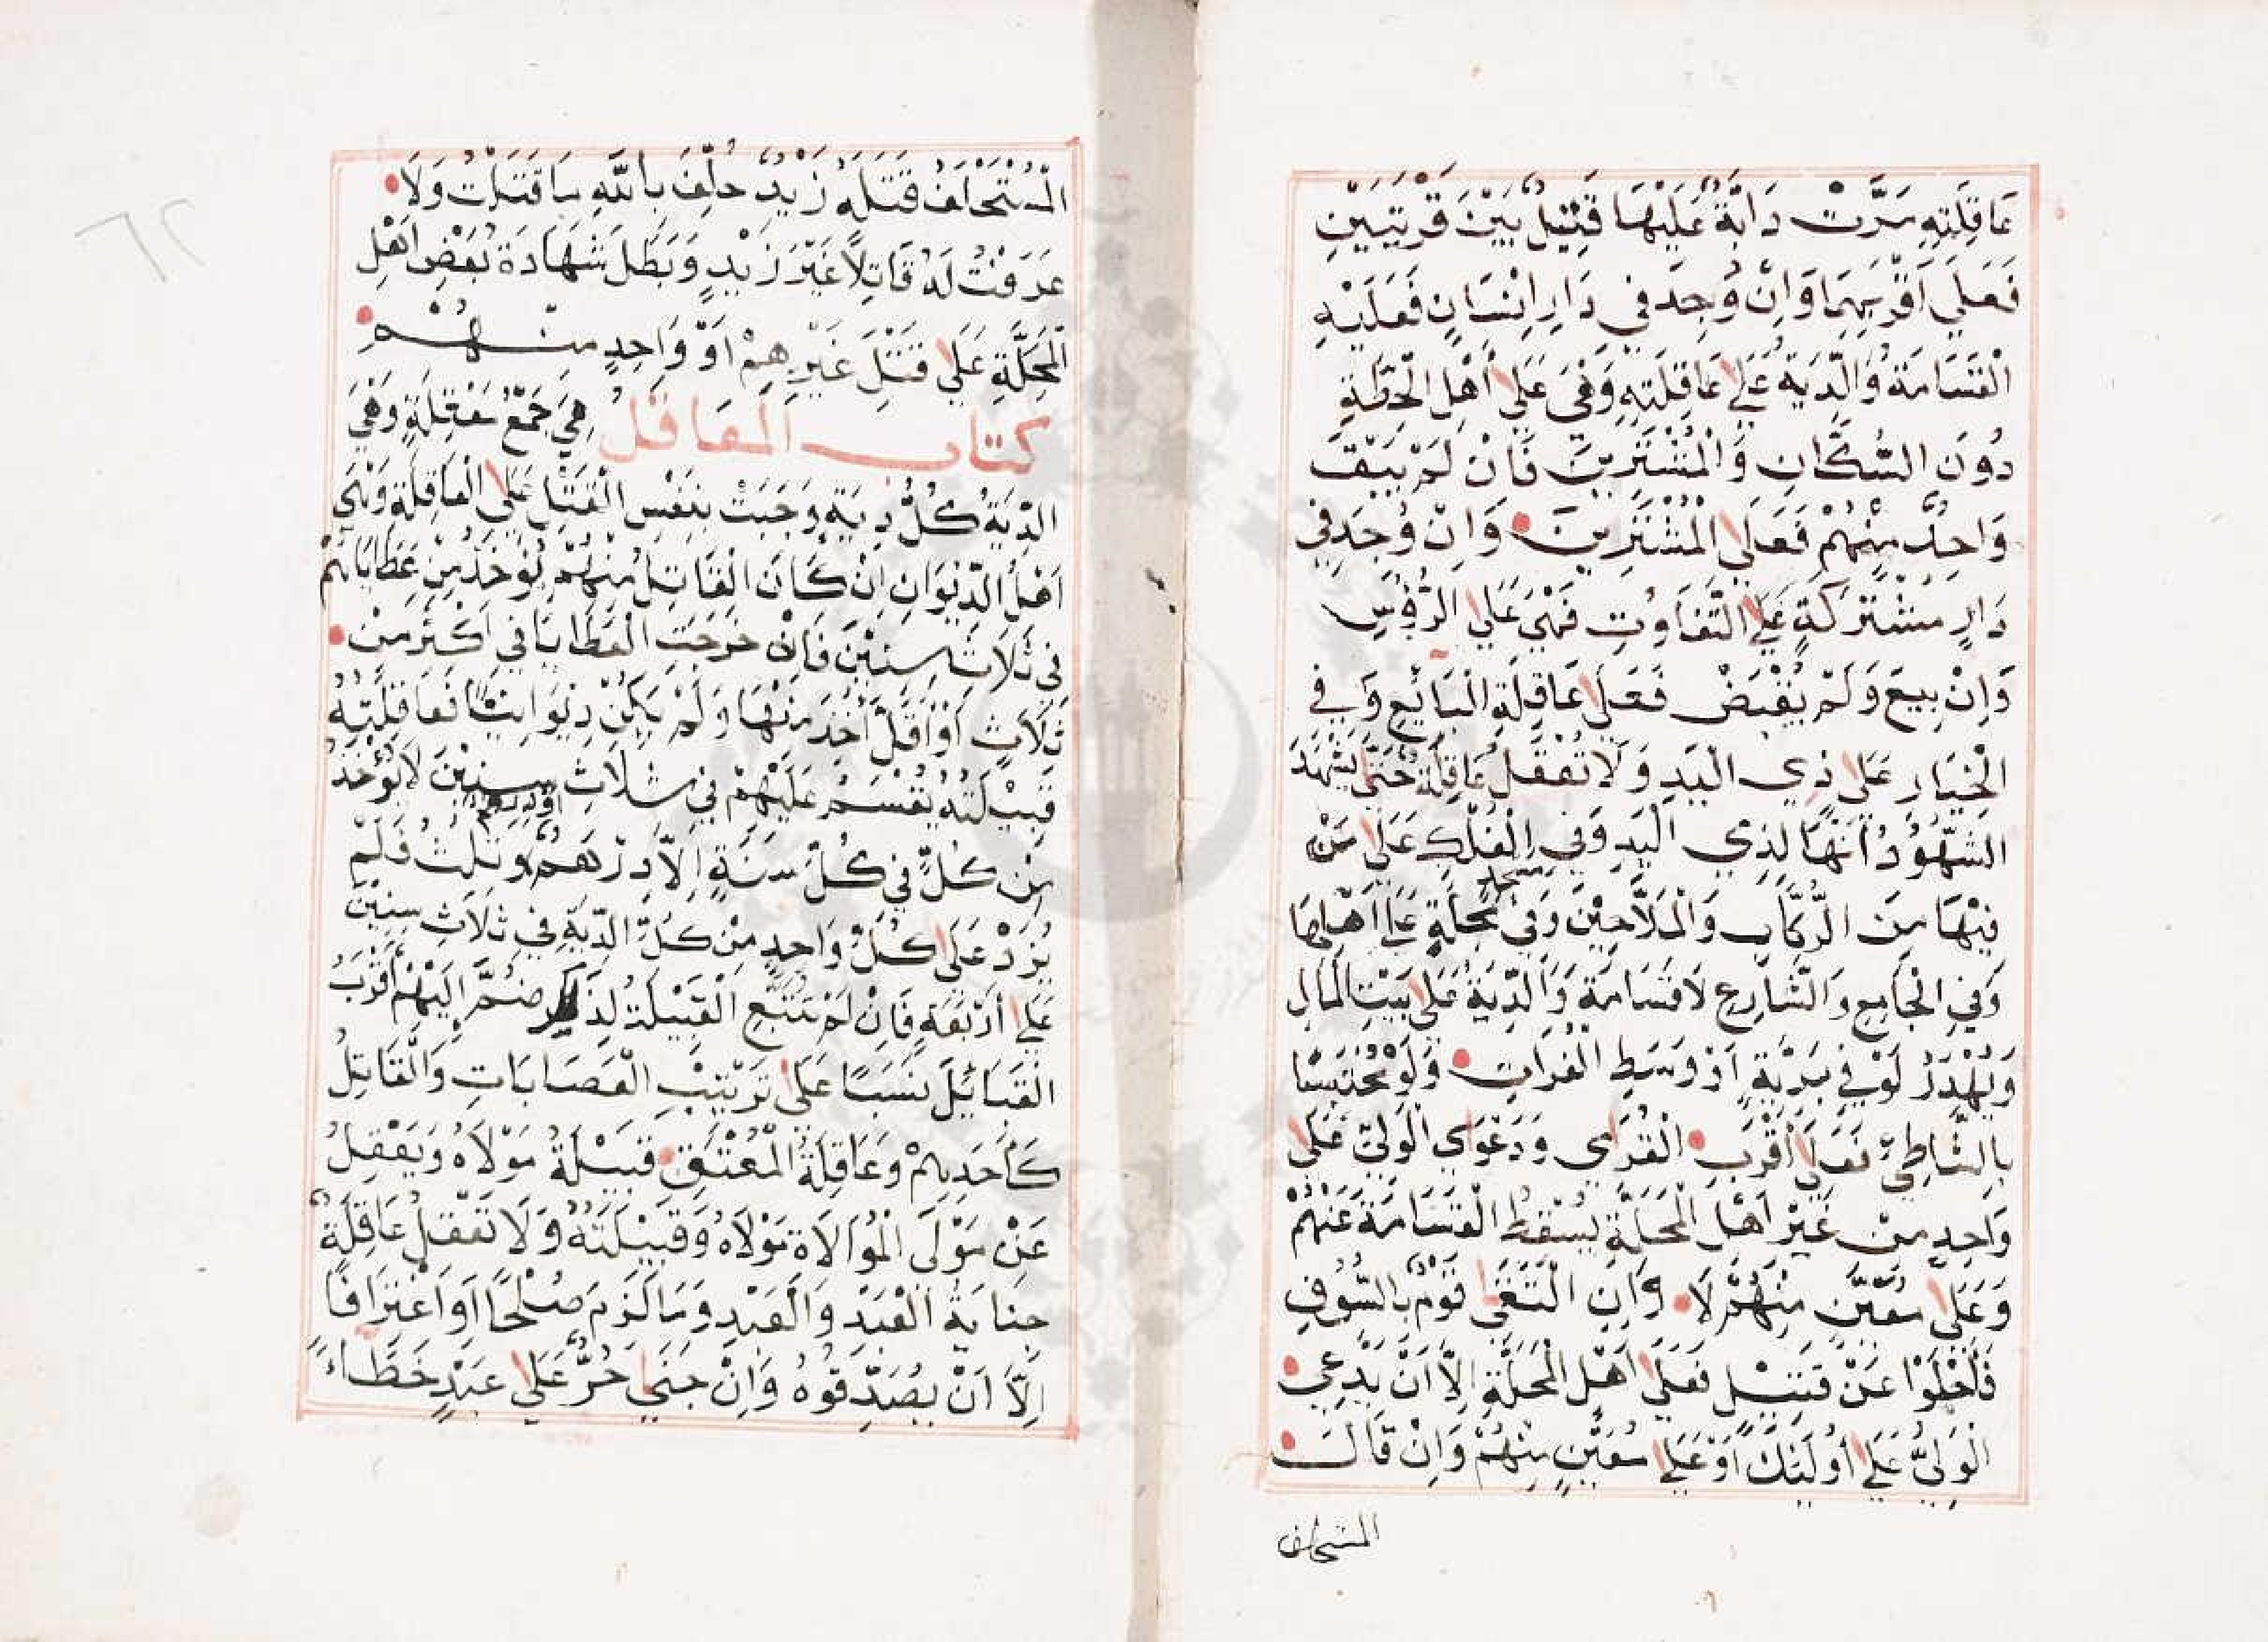 عَاقِلَتِهِ مَرَّتْ دَابَّةٌ عَلَيْهَا قَتِيْلٌ بَيْنَ قَرْيَتَيْنِ
فَعَلَي اَقْرَبِهِمَا وَاِنْ وُجِدَ فِي دَارِ اِنْسَانٍ فَعَلَيْهِ
الْقَسَامَةُ وَالدِّيَةُ عَلَي عَاقِلَتِهِ وَهْيَ عَلَي أَهْلِ الْخِطَّةِ
دُوْنَ السُّكَّانِ وَالْمُشْتَرِيْنَ فَاِنْ لَمْ يَبْقَ
وَاحِدٌ مِنْهُمْ فَعَلَى الْمُشْتَرِيْنَ وَاِنْ وُجِدَ فِي
دَارٍ مُشْتَرَكَةٍ عَلَي التَّفَاوُتِ فَهْيَ عَلَي الرُّؤُسِ
وَاِنْ بِيعَ وَلَمْ يُقْبَضْ فَعَلَي عَاقِلَةِ الْبَائِعِ وَفِي
الْخِيَارِ عَلَي ذِي الْيَدِ وَلَا تَعْقِلُ عَاقِلَةٌ حَتَّي يَشْهَدَ
الشُّهُوْدُ أَنَّهَا لِذِي الْيَدِ وَفِي الْفُلْكِ عَلَي مَنْ
فِيْهَا مِنَ الرُّكَّابِ وَالْمَلَّاحِيْنَ وَفِي مَحَلَّةٍ عَلَي اَهْلِهَا
وَفِي الْجَامِعِ وَالشَّارِعِ لَا قَسَامَةَ وَالدِّيَةُ عَلَي بَيْتِ الْمَالِ
وَيُهْدَرُ لَوْ فِي بَرِّيَّةٍ اَوْ وَسَطِ الْفُرَاتِ وَلَوْ مُحْتَبِسًا
بِالشَّاطِئِ فَعَلَي اَقْرَبِ الْقُرَاي وَدَعْوَاي الْوَلِيِّ عَلَي
وَاحِدٍ مِنْ غَيْرِ اَهْلِ الْمَحَلَّةِ يُسْقِطُ الْقَسَامَةَ عَنْهُمْ
وَعَلَي مُعَيَّنٍ مِنْهُمْ لَا وَاِنِ الْتَقَي قَوْمٌ بِالسُّيُوفِ
فَأَجْلَوْا عَنْ قَتِيْلٍ فَعَلَي اَهْلِ الْمَحَلَّةِ اِلَّا اَنْ يَدَّعِيَ
الْوَلِيُّ عَلَي اُولَئِكَ اَوْ عَلَي مُعَيَّنٍ مِنْهُمْ وَاِنْ قَالَ
المستحلف
الْمُسْتَحْلَفُ قَتَلَهُ زَيْدٌ حُلِّفَ بِاللهِ مَا قَتَلْتُ وَلَا
عَرَفْتُ لَهُ قَاتِلًا غَيْرَ زَيْدٍ وَبَطَلَ شَهَادَةُ بَعْضِ اَهْلِ
الْمَحَلَّةِ عَلَي قَتْلِ غَيْرِهِمْ اَوْ وَاحِدٍ مِنْهُمْ
كتاب المعاقل هِيَ جَمْعُ مَعْقِلَةٍ وَهْيَ
الدِّيَةُ كُلُّ دِيَةٍ وَجَبَتْ بِنَفْسِ الْقَتْلِ عَلَي الْعَاقِلَةِ وَهْيَ
اَهْلُ الدِّيْوَانِ اِنْ كَانَ الْقَاتِلُ مِنْهُمْ تُوْخَذُ مِنْ عَطَايَاهُمْ
فِي ثَلَاثِ سِنِيْنَ فَاِنْ خَرَجَتِ الْعَطَايَا فِي اَكْثَرَ مِنْ
ثَلَاثٍ اَوْ اَقَلَّ اُخِذَ مِنْهَا وَلَمْ يَكُنْ دِيْوَانِيًّا فَعَاقِلَتُهُ
قَبِيْلَتُهُ يُقْسَمُ عَلَيْهِمْ فِي ثَلَاثِ سِنِيْنَ لَا يُؤْخَذُ
مِنْ كُلٍّ فِي كُلِّ سَنَةٍ اِلَّا دِرْهَمٌ اَوْ دِرْهَمٌ وَثُلُثٌ فَلَمْ
يُزَدْ عَلَي كُلِّ وَاحِدٍ مِنْ كُلِّ الدِّيَةِ فِي ثَلَاثِ سِنِيْنَ
عَلَي أَرْبَعَةٍ فَاِنْ لَمْ تَتَّسِعِ الْقَبِيْلَةُ لِذَلِكَ ضُمَّ اِلَيْهِمْ أَقْرَبُ
الْقَبَائِلِ نَسَبًا عَلَي تَرْتِيْبِ الْعَصَابَاتِ وَالْقَاتِلُ
كَأَحَدِهِمْ وَعَاقِلَةُ الْمُعْتَقِ قَبِيْلَةُ مَوْلَاهُ وَيَعْقِلُ
عَنْ مَوْلَى الْمُوَالَاةِ مَوْلَاهُ وَقَبِيْلَتُهُ وَلَا تَعْقِلُ عَاقِلَةٌ
جِنَايَةَ الْعَبْدِ وَالْعَمْدِ وَمَا لَزِمَ صُلْحًا اَوِ اعْتِرَافًا
اِلَّا اَنْ يُصَدِّقُوهُ وَاِنْ جَنَي حُرٌّ عَلَي عَبْدٍ خَطَاءً